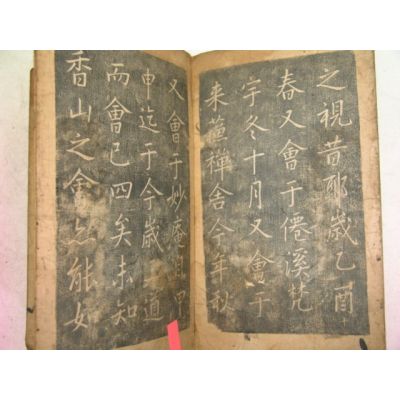 之視昔耶歲乙酉
春又會于僊溪梵
宇冬十月又會于
來蘧禪舍今年秋
又會于妙庵自甲
申迄于今歲道
而會已四矣未知
香山之會亦能如